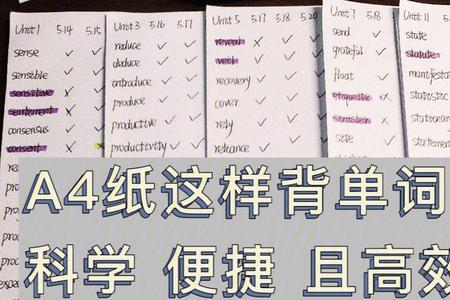 Unit 1 5.14 5.15
sense ✓ ✓
sensible ✓ ✓
sensitive × ✓
sentiment × ×
consensus ✓ ✓
consent × ×
Unit 3 5.16 5.17
reduce ✓ ✓
deduce ✓ ✓
introduce ✓ ✓
produce ✓ ✓
productive ✓ ✓
productivity ✓ ✓
Unit 5 5.17 5.18 5.20
reveal × ✓ ✓
veil × ✓ ✓
recovery ✓ ✓ ✓
cover ✓ ✓ ✓
rely ✓ ✓ ✓
reliance ✓ ✓ ✓
Unit 7 5.18
send ✓
grateful ✓
float ✓
etiquette ×
site ✓
Unit 11
state
statute
statistic
A4纸这样背单词
科学 便捷 且高效